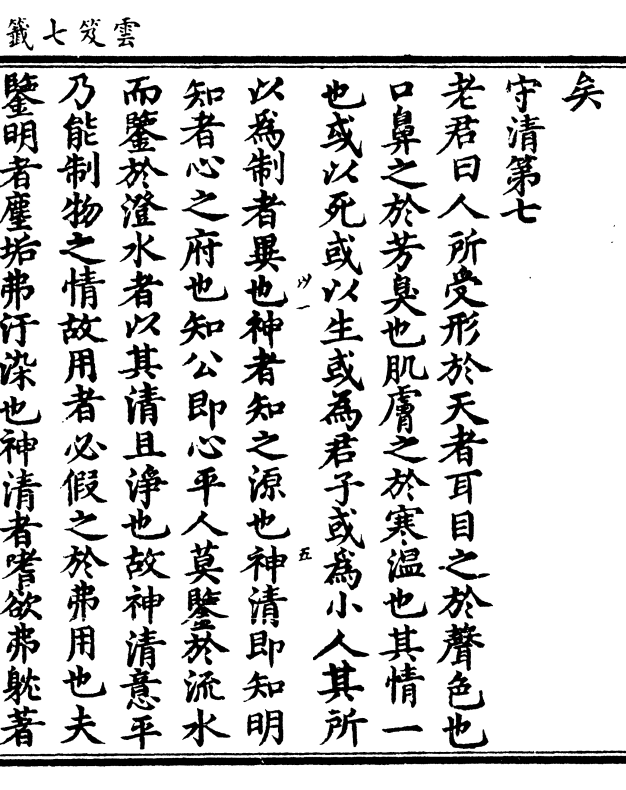 雲笈七籤
矣
守清第七
老君曰人所受形於天者耳目之於聲色也
口鼻之於芳臭也肌膚之於寒温也其情一
也或以死或以生或為君子或為小人其所
以一
五
以為制者異也神者知之源也神清即知明
知者心之府也知公即心平人莫鑒於流水
而鑒於澄水者以其清且淨也故神清意平
乃能制物之情故用者必假之於弗用也夫
鑒明者塵垢弗汙染也神清者嗜欲弗躭著